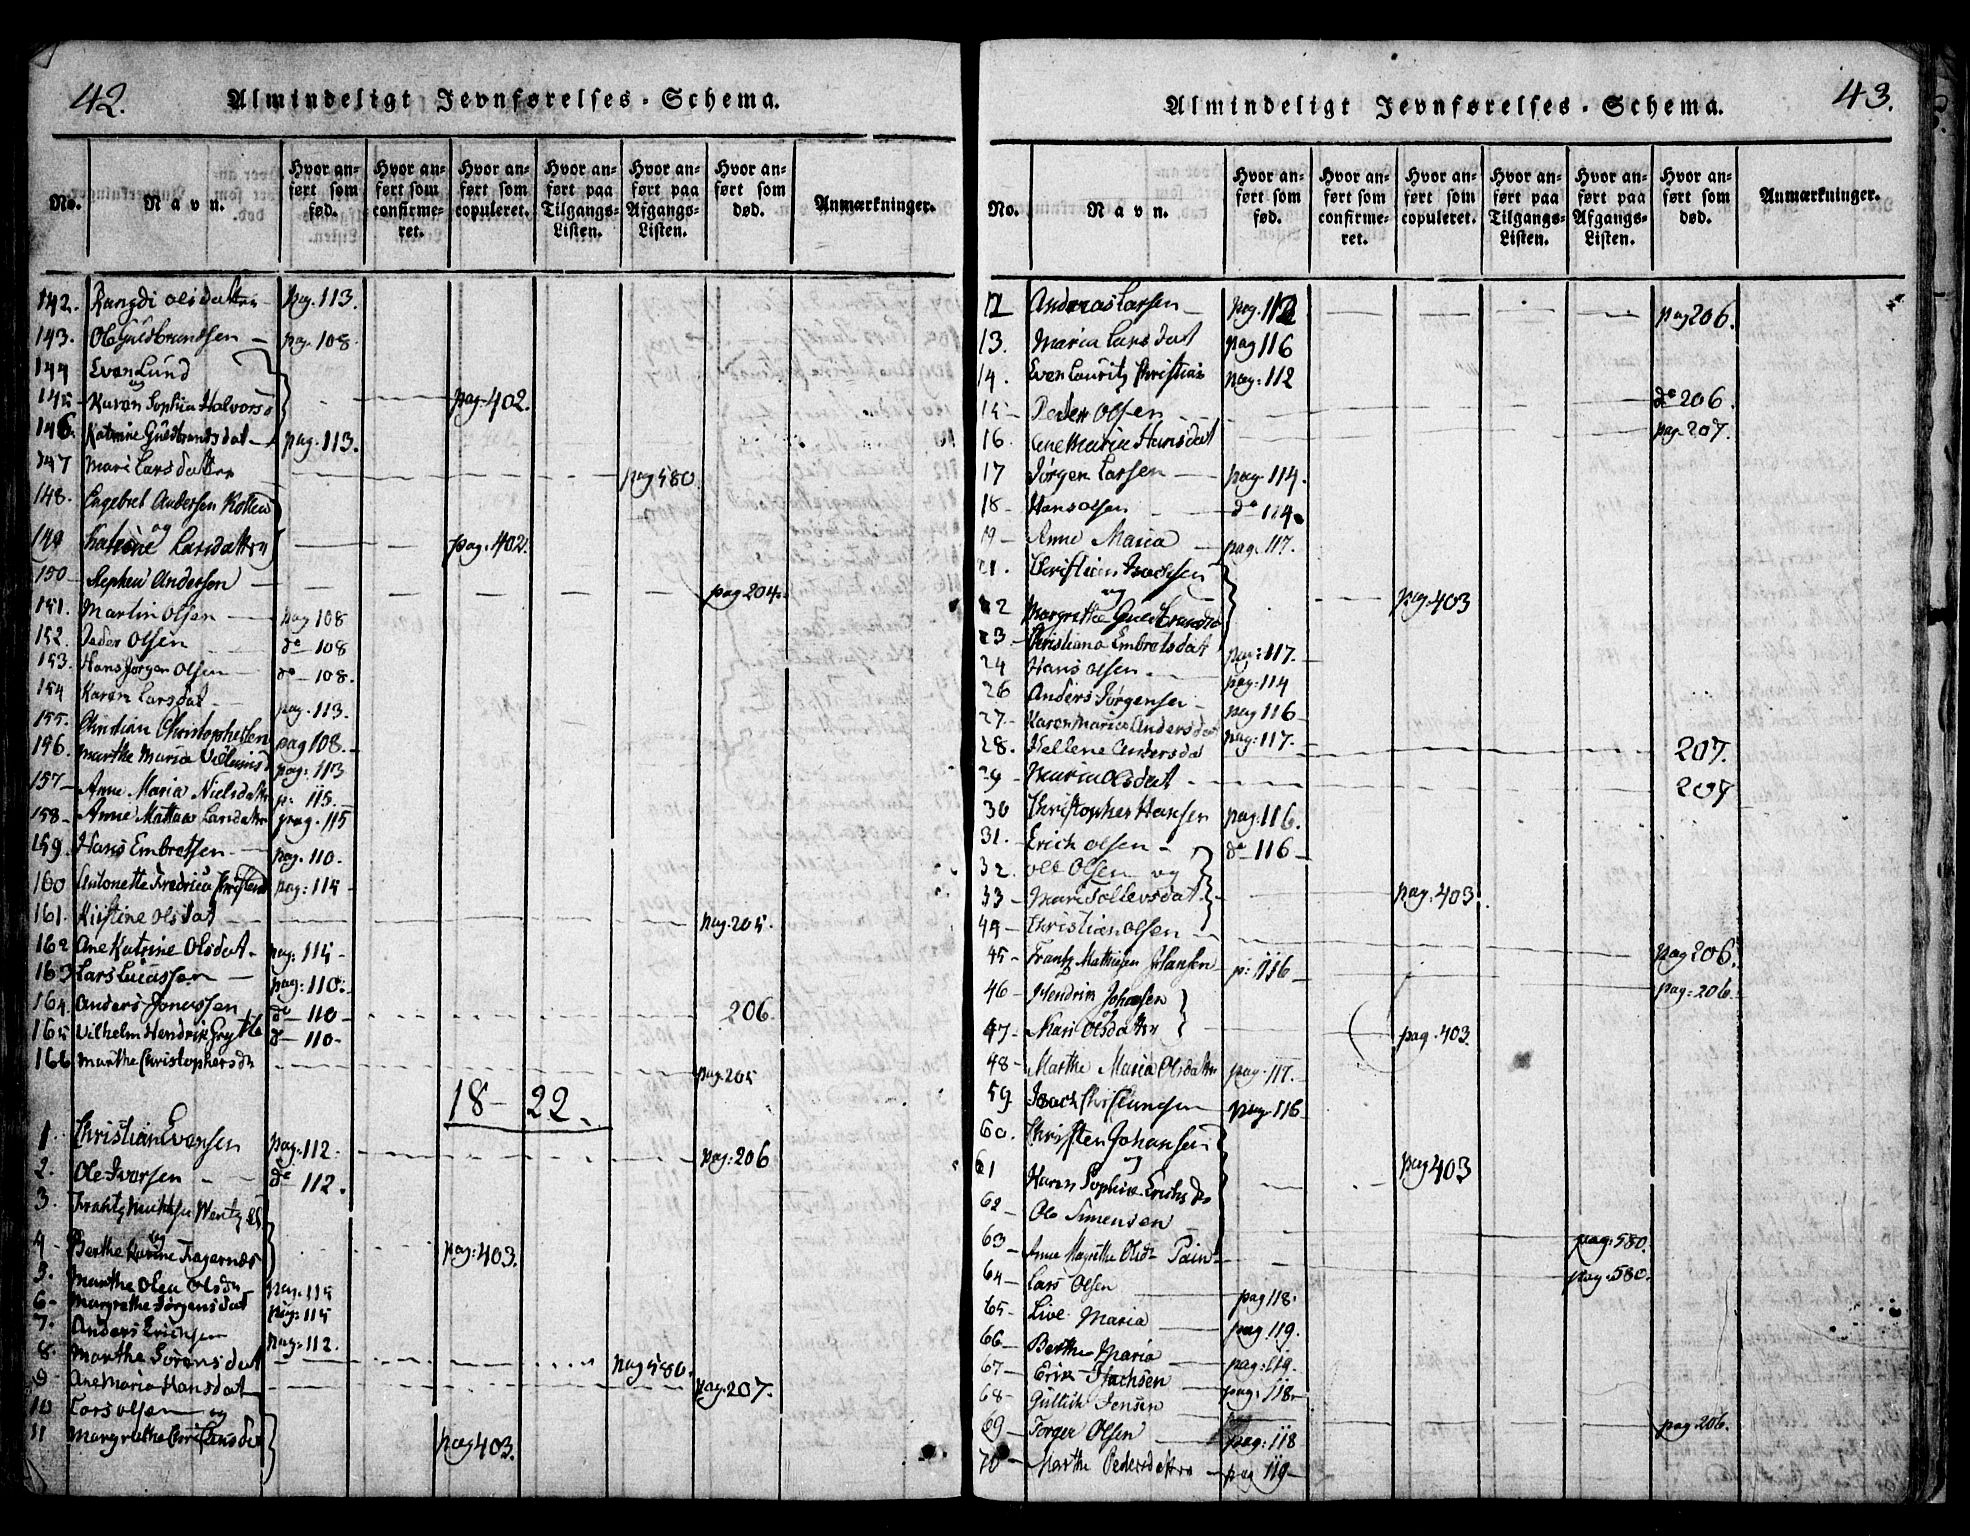 42.
Almindeligt Jevnførelses-Schema.
No.
Navn.
Hvor anført som fød.
Hvor anført som confirmeret.
Hvor anført som copuleret.
Hvor anført paa Tilgangs-Listen.
Hvor anført paa Afgangs-Listen.
Hvor anført som død.
Anmærkninger.
142. Rangdi olsdatter pag. 113.
143. Ole Guldbrandsen pag. 108
144 Even Lund
og
145 Karen Sophia Halvorsd pag. 402.
146 Katrine Guldbrandsdat pag. 113.
147 Mari Larsdatter pag 580.
148. Engebret Andersen
og
149 Larsdatter pag. 402.
150 Stephen Andersen pag 204.
151. Martin Olsen pag 108
152. Peder Olsen do 108
153. Hans Jørgen Olsen do 108.
154 Karen Larsdat pag. 113.
155. Christian Christophersen pag 108.
156. Marthe Maria pag: 113
157 Anne Maria Nielsdatter p: 115.
158 Anne Larsdatter pag. 115
159 Hans Embretsen pag. 110.
160 Antonette Fredrica pag: 115
161. Kirstine olsdat pag. 205.
162 Ane Katrine Olsdat. pag: 115
163 Lars Lucassen pag: 110.
164 Anders Jonassen do 110 206.
165 Vilhelm Hendrik do 110
166 Marthe Christophersdr pag. 205
18 22.
1 Christian Evensen pag. 112. pag: 206
2. Ole Iversen do 112.
3. Frantz
og
4 Berthe Karine Fagernæs pag: 403.
5. Marthe Olea Olsdr pag. 115
6 Margrethe Jørgensdat pag. 115
7. Anders Erichsen pag. 112.
8. Marthe Sørensdat pag 580.
9 Ane Maria Hansdat pag. 207.
10 Lars olsen og
11 Margrethe pag 403.
43.
Almindeligt Jevnførelses-Schema.
No.
Navn.
Hvor anført som fød.
Hvor anført som confirmeret.
Hvor anført som copuleret.
Hvor anført paa Tilgangs-Listen.
Hvor anført paa Afgangs-Listen.
Hvor anført som død.
Anmærkninger.
12 Andreas Larsen pag. 112 pag 206.
13. Maria Larsdat pag 116
14. Even Lauritz Christian pag: 112
15 Peder Olsen do 206.
16. Ane Maria Hansdat pag. 207.
17 Jørgen Larsen pag. 114.
18 Hans olsen do 114
19 Anne Maria pag. 117.
21. Christian Isachsen
og
22 Margrethe pag. 403
23 Christiana Embretsdat pag: 117.
24 Hans olsen pag: 114
26 Anders Jørgensen pag 116
27. Karen Maria Andersdat pag: 117.
28. Hellene Andersdat 207.
29 Maria Olsdat 207
30 Christopher Hansen pag. 116.
31. Erich olsen do 116
32. ole Olsen og
33 Mari Tollevsdat pag. 403.
44 Christian olsen pag 206.
45 Frantz Mathisen p: 116 pag: 206.
46 Hendrik Johansen
og
47 Mari Olsdattr pag. 403.
48 Marthe Maria Olsdattr pag. 117.
59 Isach Christiansen pag. 116
60. Christen Johansen
og
61 Karen Sophie Erichsdr pag 403
62 Ole Simensen pag: 580.
63 Anne Magrethe Olsdr pag. 580.
64 Lars Olsen pag 118.
65 Live Maria pag 119.
66 Berthe Maria pag: 119.
67 Erik Isachsen pag. 118
68 Gullich Jensen pag. 206.
69 Torger Olsen pag: 118
70 Marthe Pedersdatter pag 119